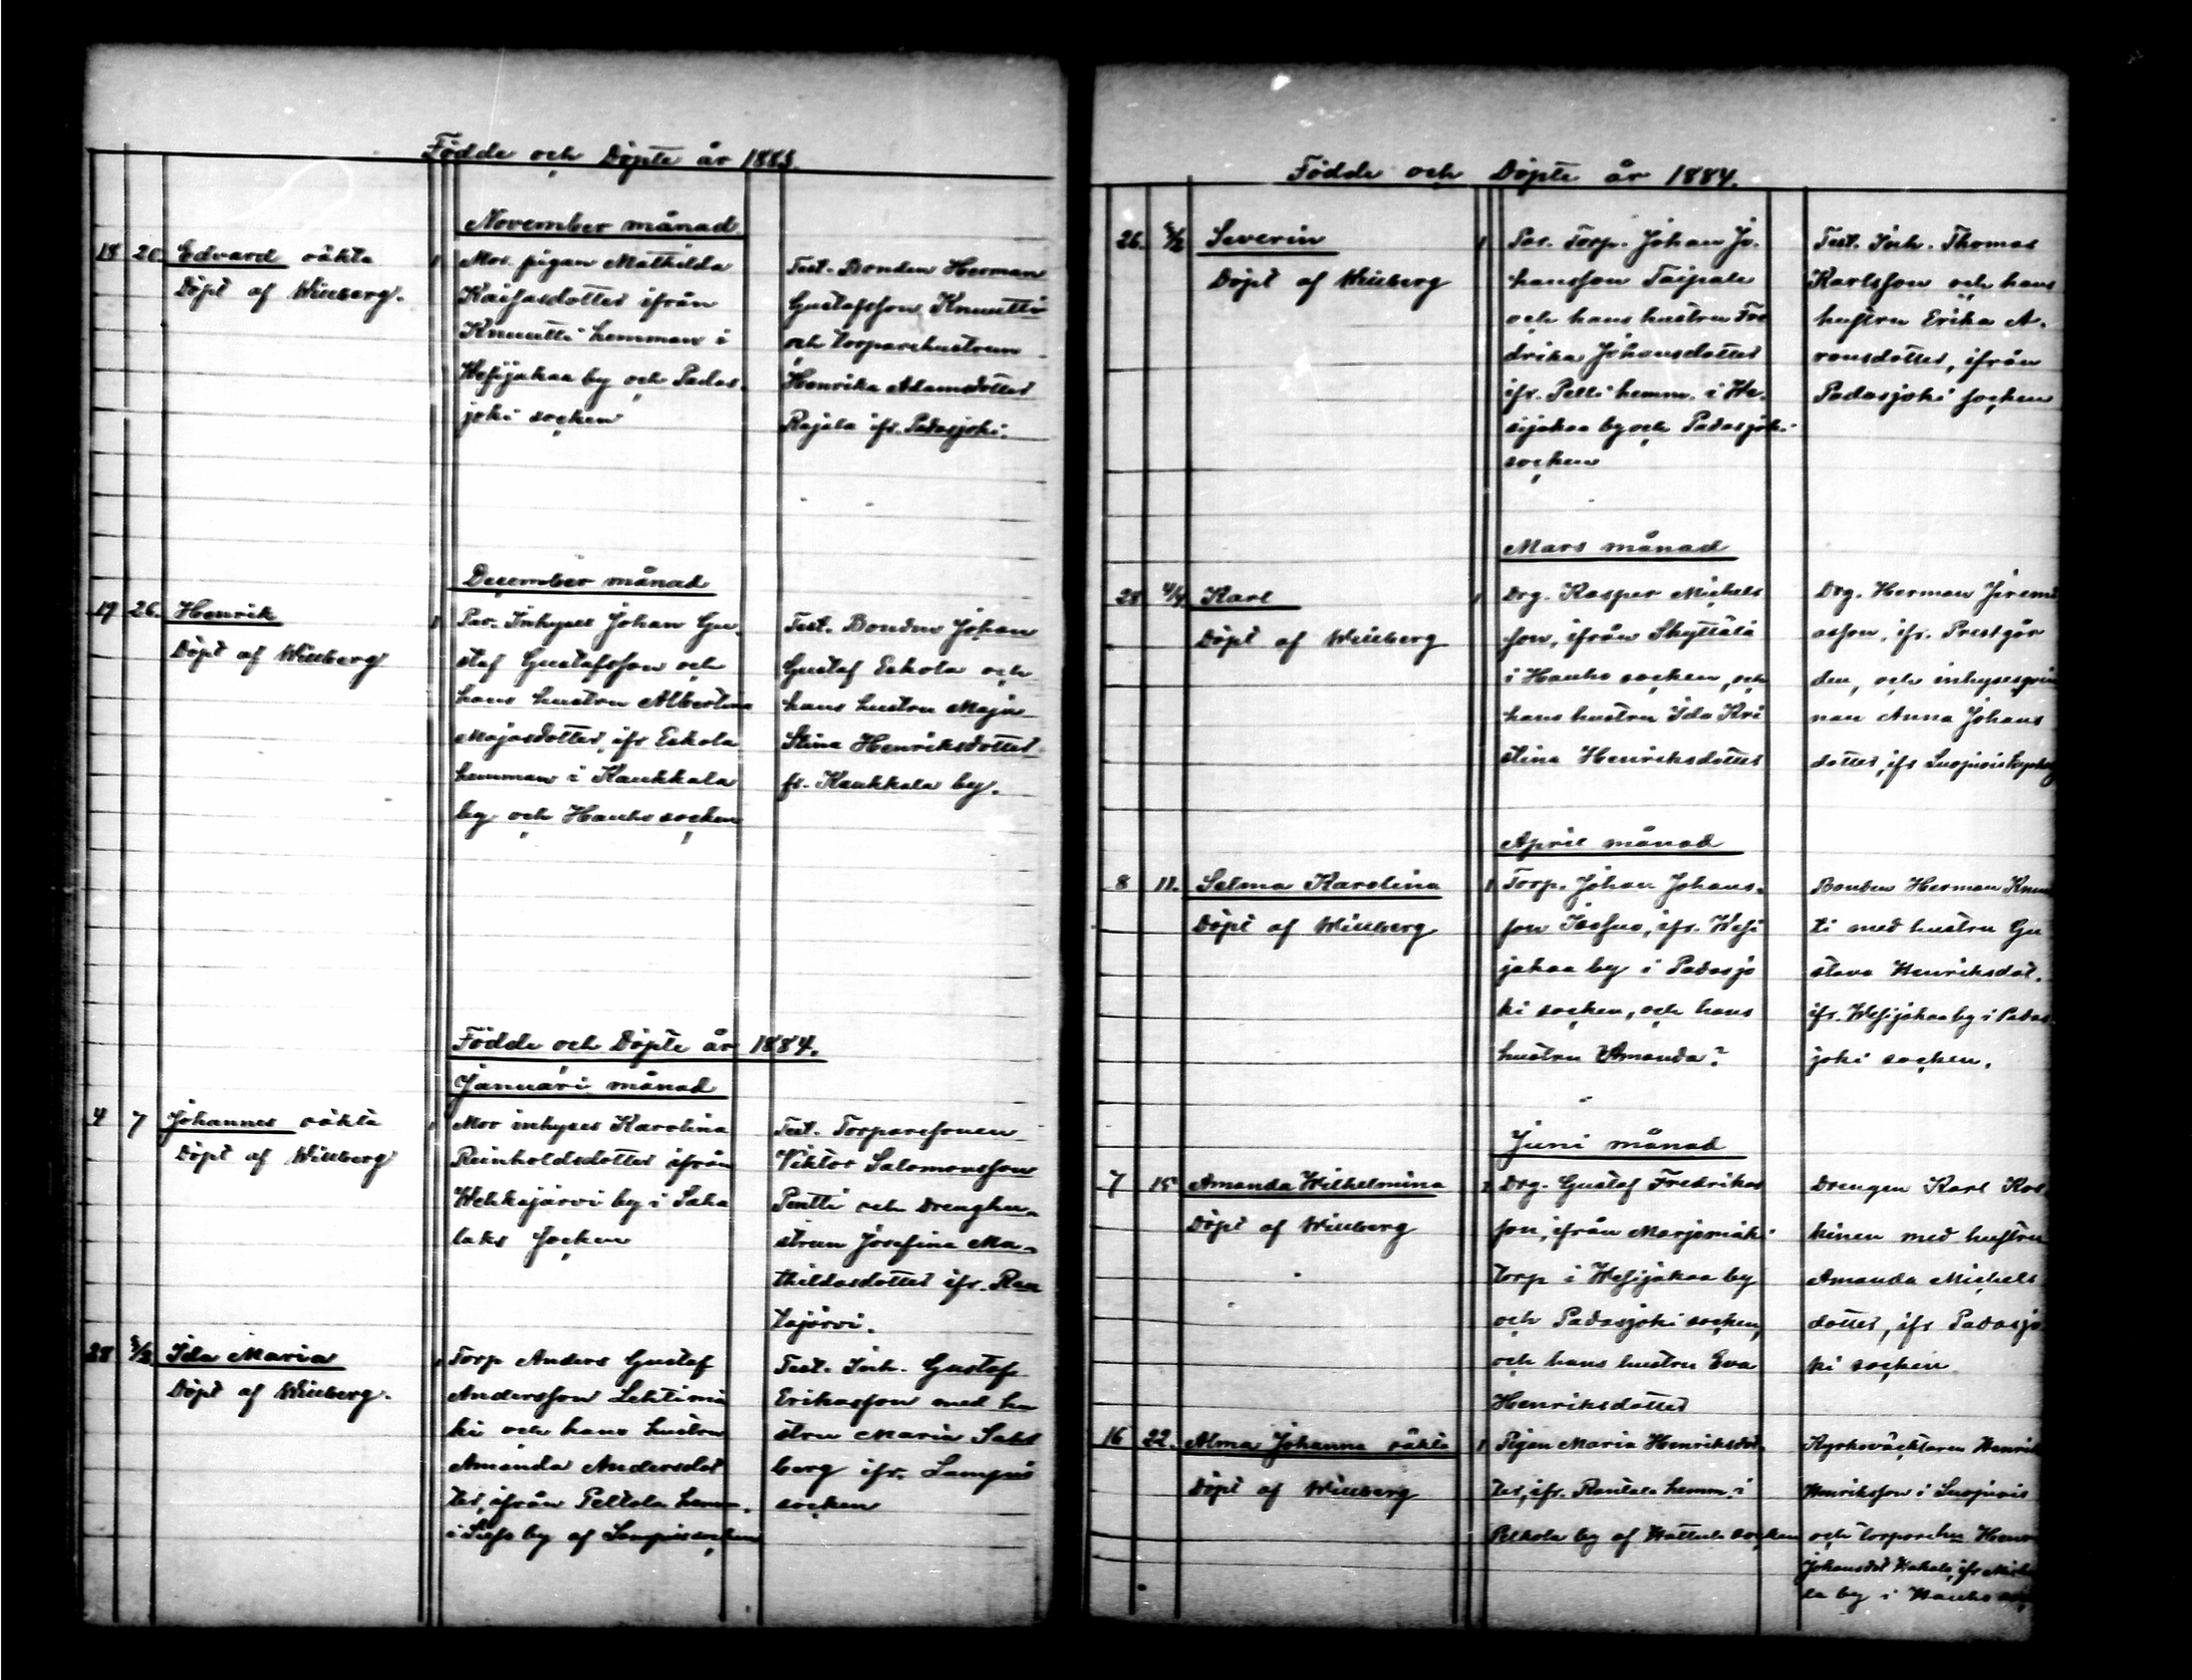 Födde och Döpte år 1883.
November månad.
18 20. Edvard oäkta
Döpt af Willberg.
1 Mor. pigan Mathilda
Kaisasdotter ifrån
Knuutti hemman i
Wesijakaa by och Padas-
joki socken
Test. Bonden Herman
Gustafsson Knuutti
och torparehustrun
Henrika Adamsdotter
Rajala ifr. Padasjoki.
December månad
19 26. Henrik
Döpt af Willberg
1 Par. Inhyses Johan Gu-
staf Gustafsson och
hans hustru Albertina
Majasdotter, ifr Eskola
hemman i Kaukkala
by och Hauho socken
Test. Bonden Johan
Gustaf Eskola och
hans hustru Maja
Stina Henriksdotter
fr. Kaukkala by.
Födde och Döpte år 1884.
Januari månad
4 7 Johannes oäkta
Döpt af Willberg
1 Mor inhyses Karolina
Reinholdsdotter ifrån
Wehkajärvi by i Saha
laks socken
Test. Torparesonen
Viktor Salomonsson
Pentti och drenghu-
strun Josefina Ma-
thildasdotter ifr. Rau
tajärvi.
28 3/2 Ida Maria
Döpt af Willberg.
1 Torp Anders Gustaf
Andersson Lehtimä
ki och hans hustru
Amanda Andersdot
ter, ifrån Peltola hemm.
i by af Lampis socken
Test. Inh. Gustaf
Eriksson med hu
stru Maria Sahl
berg ifr. Lampis
socken
Födde och Döpte år 1884.
26. /2 Severin
Döpt af Willberg
1 Par. Torp. Johan Jo-
hansson Taipale
och hans hustru Fre
drika Johansdotter
ifr. Pelli hemm. i We-
sijakaa by och Padasjoki
socken
Test. Inh. Thomas
Karlsson och hans
hustru Erika A-
ronsdotter, ifrån
Padasjoki socken
Mars månad
28 4/4 Karl
Döpt af Willberg
1 Drg. Kasper Michels
son, ifrån Skyttälä
i Hauho socken, och
hans hustru Ida Kri
stina Henriksdotter
Drg. Herman Jeremi
asson, ifr. Prestgår
den, och inhysesqvin
nan Anna Johans
dotter, ifr
April månad
8 11. Selma Karolina
Döpt af Willberg
1 Torp. Johan Johans-
son ifr. Wesi
jakaa by i Padasjo
ki socken, och hans
hustru Amanda?
Bonden Herman Knuu
ti med hustru Gu
stava Henriksdot.
ifr. Wesijakaa by i Padas-
joki socken.
Juni månad
7 15 Amanda Wilhelmina
Döpt af Willberg
1 Drg. Gustaf Fredriks
son, ifrån Marjamäki
torp i Wesijakaa by
och Padasjoki socken,
och hans hustru Eva
Henriksdotter
Drengen Karl Kos
kinen med hustru
Amanda Michels
dotter, ifr Padasjo
ki socken
16 22. Alma Johanna oäkta
Döpt af Willberg
1 Pigan Maria Henriksdot-
ter, ifr. Rautala hemm. i
Pelkola by af Wattula socken
Kyrkoväktaren Henrik
Henriksson i
och torparehu
Johansdot ifr
la by i Hauho